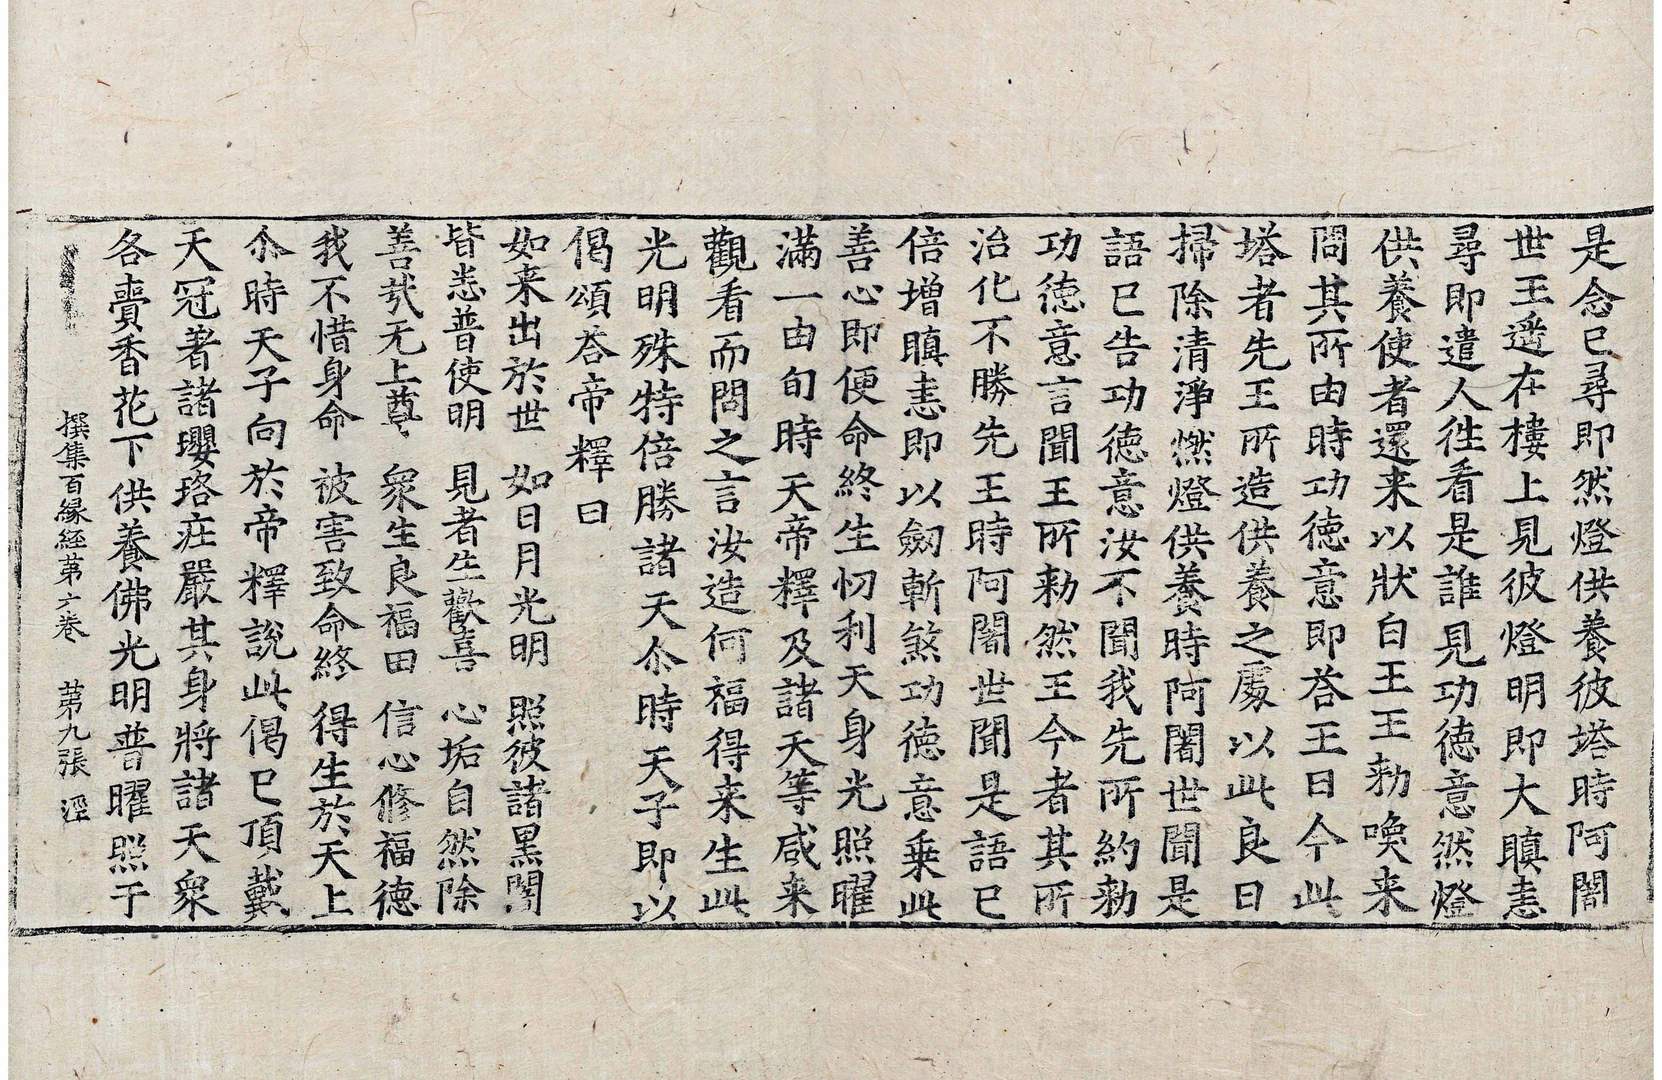 是念已尋即然燈供養彼塔時阿闍
世王遥在樓上見彼燈明即大瞋恚
尋即遣人徃看是誰見功徳意然燈
供養使者還来以狀白王王勑喚来
問其所由時功徳意即荅王曰今此
塔者先王所造供養之處以此良日
掃除清淨燃燈供養時阿闍世聞是
語已告功徳意汝不聞我先所約勑
功徳意言聞王所勑然王今者其所
治化不勝先王時阿闍世聞是語已
倍增瞋恚即以劔斬煞功徳意乗此
善心即便命終生忉利天身光照曜
滿一由旬時天帝釋及諸天等咸来
觀看而問之言汝造何福得来生此
光明殊特倍勝諸天尒時天子即以
偈頌荅帝釋曰
如来出於世　如日月光明　照彼諸黑闇
皆悉普使明　見者生歡喜　心垢自然除
善㢤无上尊　衆生良福田　信心修福徳
我不惜身命　被害致命終　得生於天上
尒時天子向於帝釋說此偈已頂戴
天冠著諸瓔珞莊嚴其身將諸天衆
各賷香花下供養佛光明普曜照于
撰集百縁經苐六卷　苐九張　涇